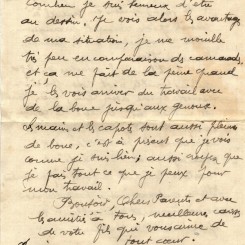 Combien je suis heureux d'être
au dessin. Je vois alors les avantages
de ma situation, je me mouille
très peu en comparaison des camarades
et ça me fait de la peine quand
je les vois arriver du travail avec
de la boue jusqu'aux genoux.
mains et les capots sont aussi pleins
de boue, c'est à présent que je vois
comme je suis bien; aussi
je fais tout ce que je peux pour
mon travail.
Bonsoir, Chers Parents et avec
amitiés à tous, meilleures
de votre fils qui vous aime de
tout cœur.